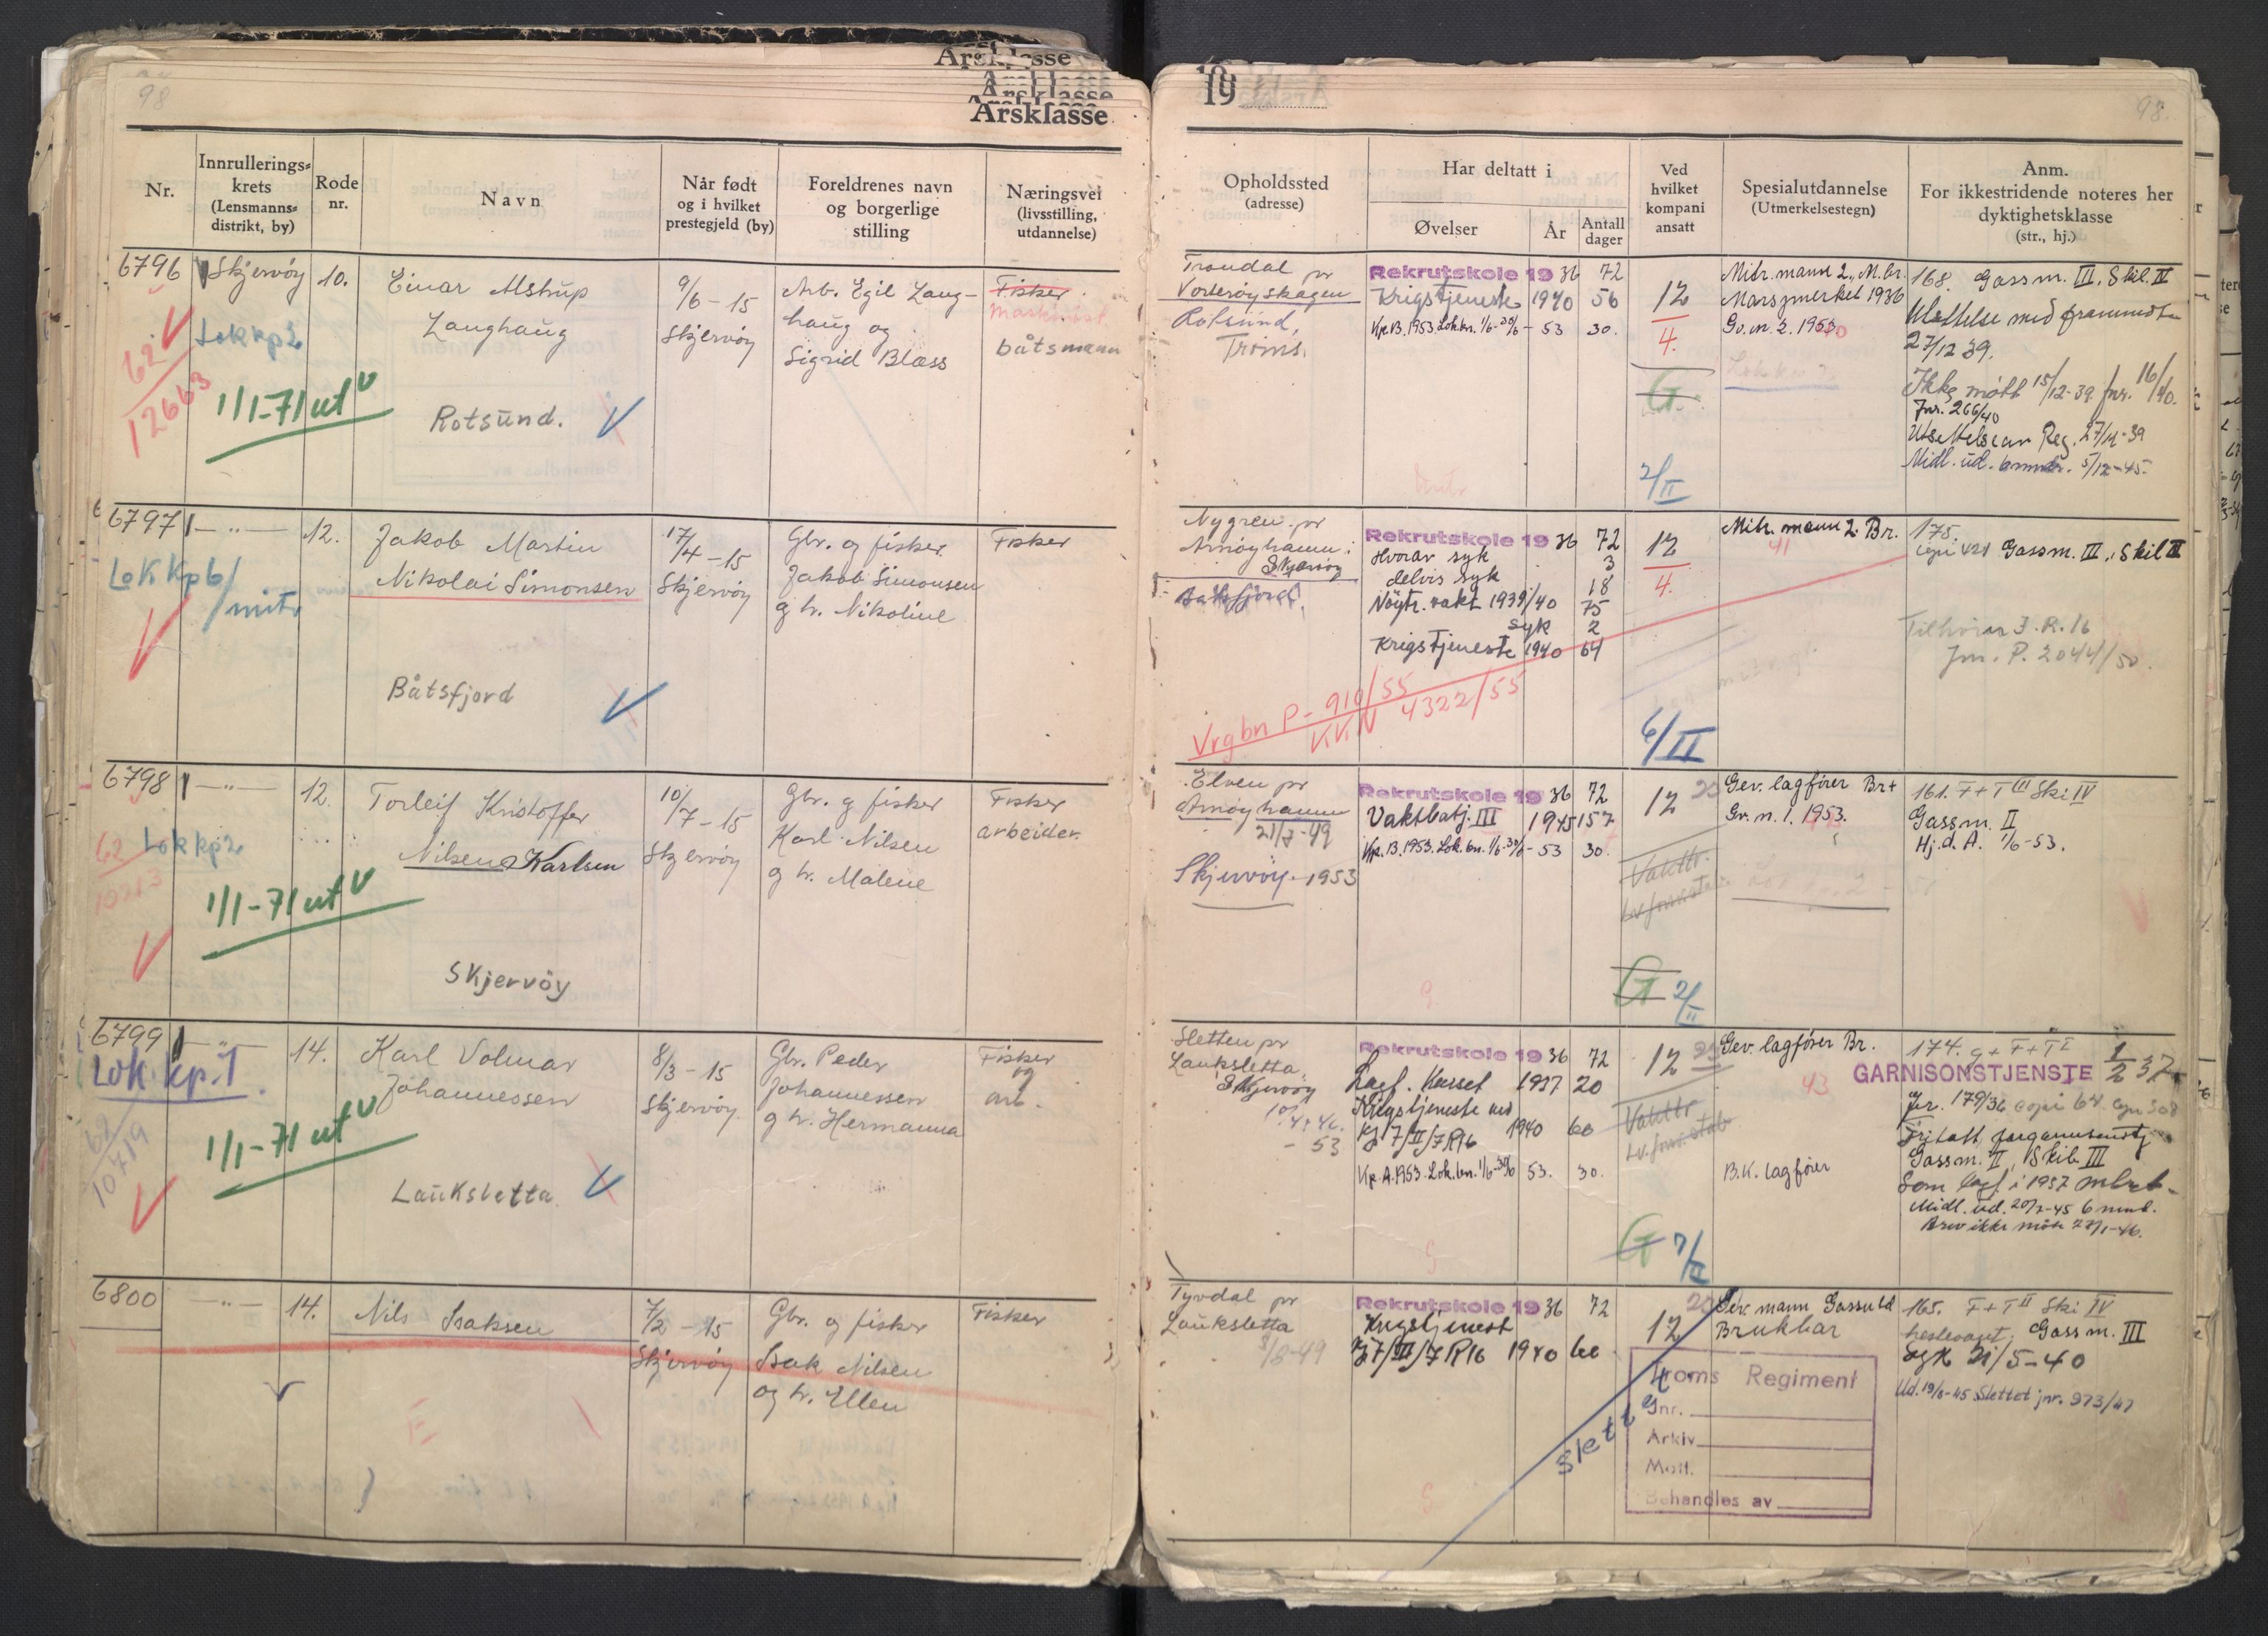 98
Årsklasse
Nr.
Innrullerings-
krets
(Lensmanns-
distrikt, by)
Rode
nr.
Navn
Når født
og i hvilket
prestegjeld (by)
Foreldrenes navn
og borgerlige
stilling
Næringsvei
(livsstilling,
utdannelse)
6796
Skjervöy
10.
Einar Alstrup
Langhaug
9/6 - 15
Skjervöy
Arb. Egil Lang-
haug og
Sigrid Blæss
Fisker
båtsmann
62
12663
Lok kp 2
1/1-71 ut V
Rotsund.
6797
- " -
12.
Jakob Martin
Nikolai Simonsen
17/4 - 15
Skjervöy
Gbr. og fisker
Jakob Simonsen
g h. Nikoline
Fisker
Lok kp 6/
mitr
Båtsfjord
6798
- " -
12.
Torleif Kristoffer
Nilsen Karlsen
10/7 - 15
Skjervöy
Gbr. g fisker
Karl Nilsen
g h. Malene
Fisker
arbeider.
62
10213
Lok kp 2
1/1-71 ut V
Skjervöy
6799
- " -
14.
Karl Volmar
Johannessen
8/3 - 15
Skjervöy
Gbr. Peder
Johannessen
g h. Hermanna
Fisker
og
arb.
Lok. kp. 1
62
10719
1/1-71 ut V
Lauksletta
6800
- " -
14.
Nils Isaksen
7/2 - 15
Skjervöy
Gbr. og fisker
Isak Nilsen
og h. Ellen
Fisker
E
19
98.
Opholdssted
(adresse)
Har deltatt i
Øvelser
År
Antall
dager
Ved
hvilket
kompani
ansatt
Spesialutdannelse
(Utmerkelsestegn)
Anm.
For ikkestridende noteres her
dyktighetsklasse
(str., hj.)
Trondal pr
Vorterøyskagen
Rotsund,
Troms.
Rekrutskole 19 36 72
Krigstjeneste 1940 56
Kp.B.1953 Lok.bn. 1/6-30/6 - 53 30.
12
4.
G
2/II
Mitr. mann 2. M.br.
Marsjmerket 1936
Gv.m. 2. 1953
168. Gassm. III. Skil. IV
27/12 39.
Ikke møtt 15/12-39 jnr. 16/1 40.
Jnr. 266/40
Utsettelse av Reg. 27/11-39
Midl. ud. 6 mndr. 5/12-45.
Nygren pr
Arnøyhamn i
Skjervøy
Båtsfjord.
Rekrutskole 19 36 72
Hvorav syk 3
delvis syk 18
Nøytr. vakt 1939/40 75
syk 2
Krigstjeneste 1940 64
Vrgbn P - 910/55
KKN 4322/55
12
4.
6/II
Mitr. mann 2. Br.
41
175.
Gassm. III. Skil II
Tilhører 3. R. 16
Jnr. P. 2044/50.
Elven pr
Arnøyhamn
21/7-49
Skjervøy - 1953
Rekrutskole 19 36 72
Vaktbatj. III 1945 157
Kp.B.1953. Lok.bn. 1/6-30/6 - 53 30.
12
Vakttr.
G 2/II
Gev. lagfører Br+
Gv. m. 1. 1953.
161. F+T III Ski IV
Gassm. II
Hj.d.A. 1/6-53.
Sletten pr
Lauksletta
Skjervøy
- 53
Rekrutskole 19 36 72
Lagf. Kurset 1937 20
Krigstjeneste ved
Kj 7/II/7 R16 1940 60
Kp.A.1953. Lok.bn. 1/6-30/6 53. 30.
12
Vakttr
G 7/II
Gev. lagfører Br.
43
B.K. lagfører
174. g+F+T I
GARNISONSTJENSTE 1/2 37
Jnr. 179/36 copi 64
Fritatt
Gassm. II, Skil. III
Som lagf. i 1937
Midl. ud. 20/7-45 6 mnd.
Brev ikke møte 27/1-46.
Tyvdal pr
Lauksletta
5/8-49
Rekrutskole 19 36 72
Krigstjenest
Kj 7/II/7 R16 1940 60
12
Slett
Gev. mann Gassutd
Brukbar
Troms Regiment
Jnr.
Arkiv
Mott.
Behandles av
165. F+T II Ski IV
Gassm. III
Syk 21/5-40
Ud. 19/8-45 Slettet jnr. 973/47